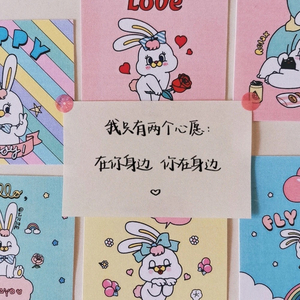 LOVE
PPY
我只有两个心愿：
在你身边 你在身边
FLY